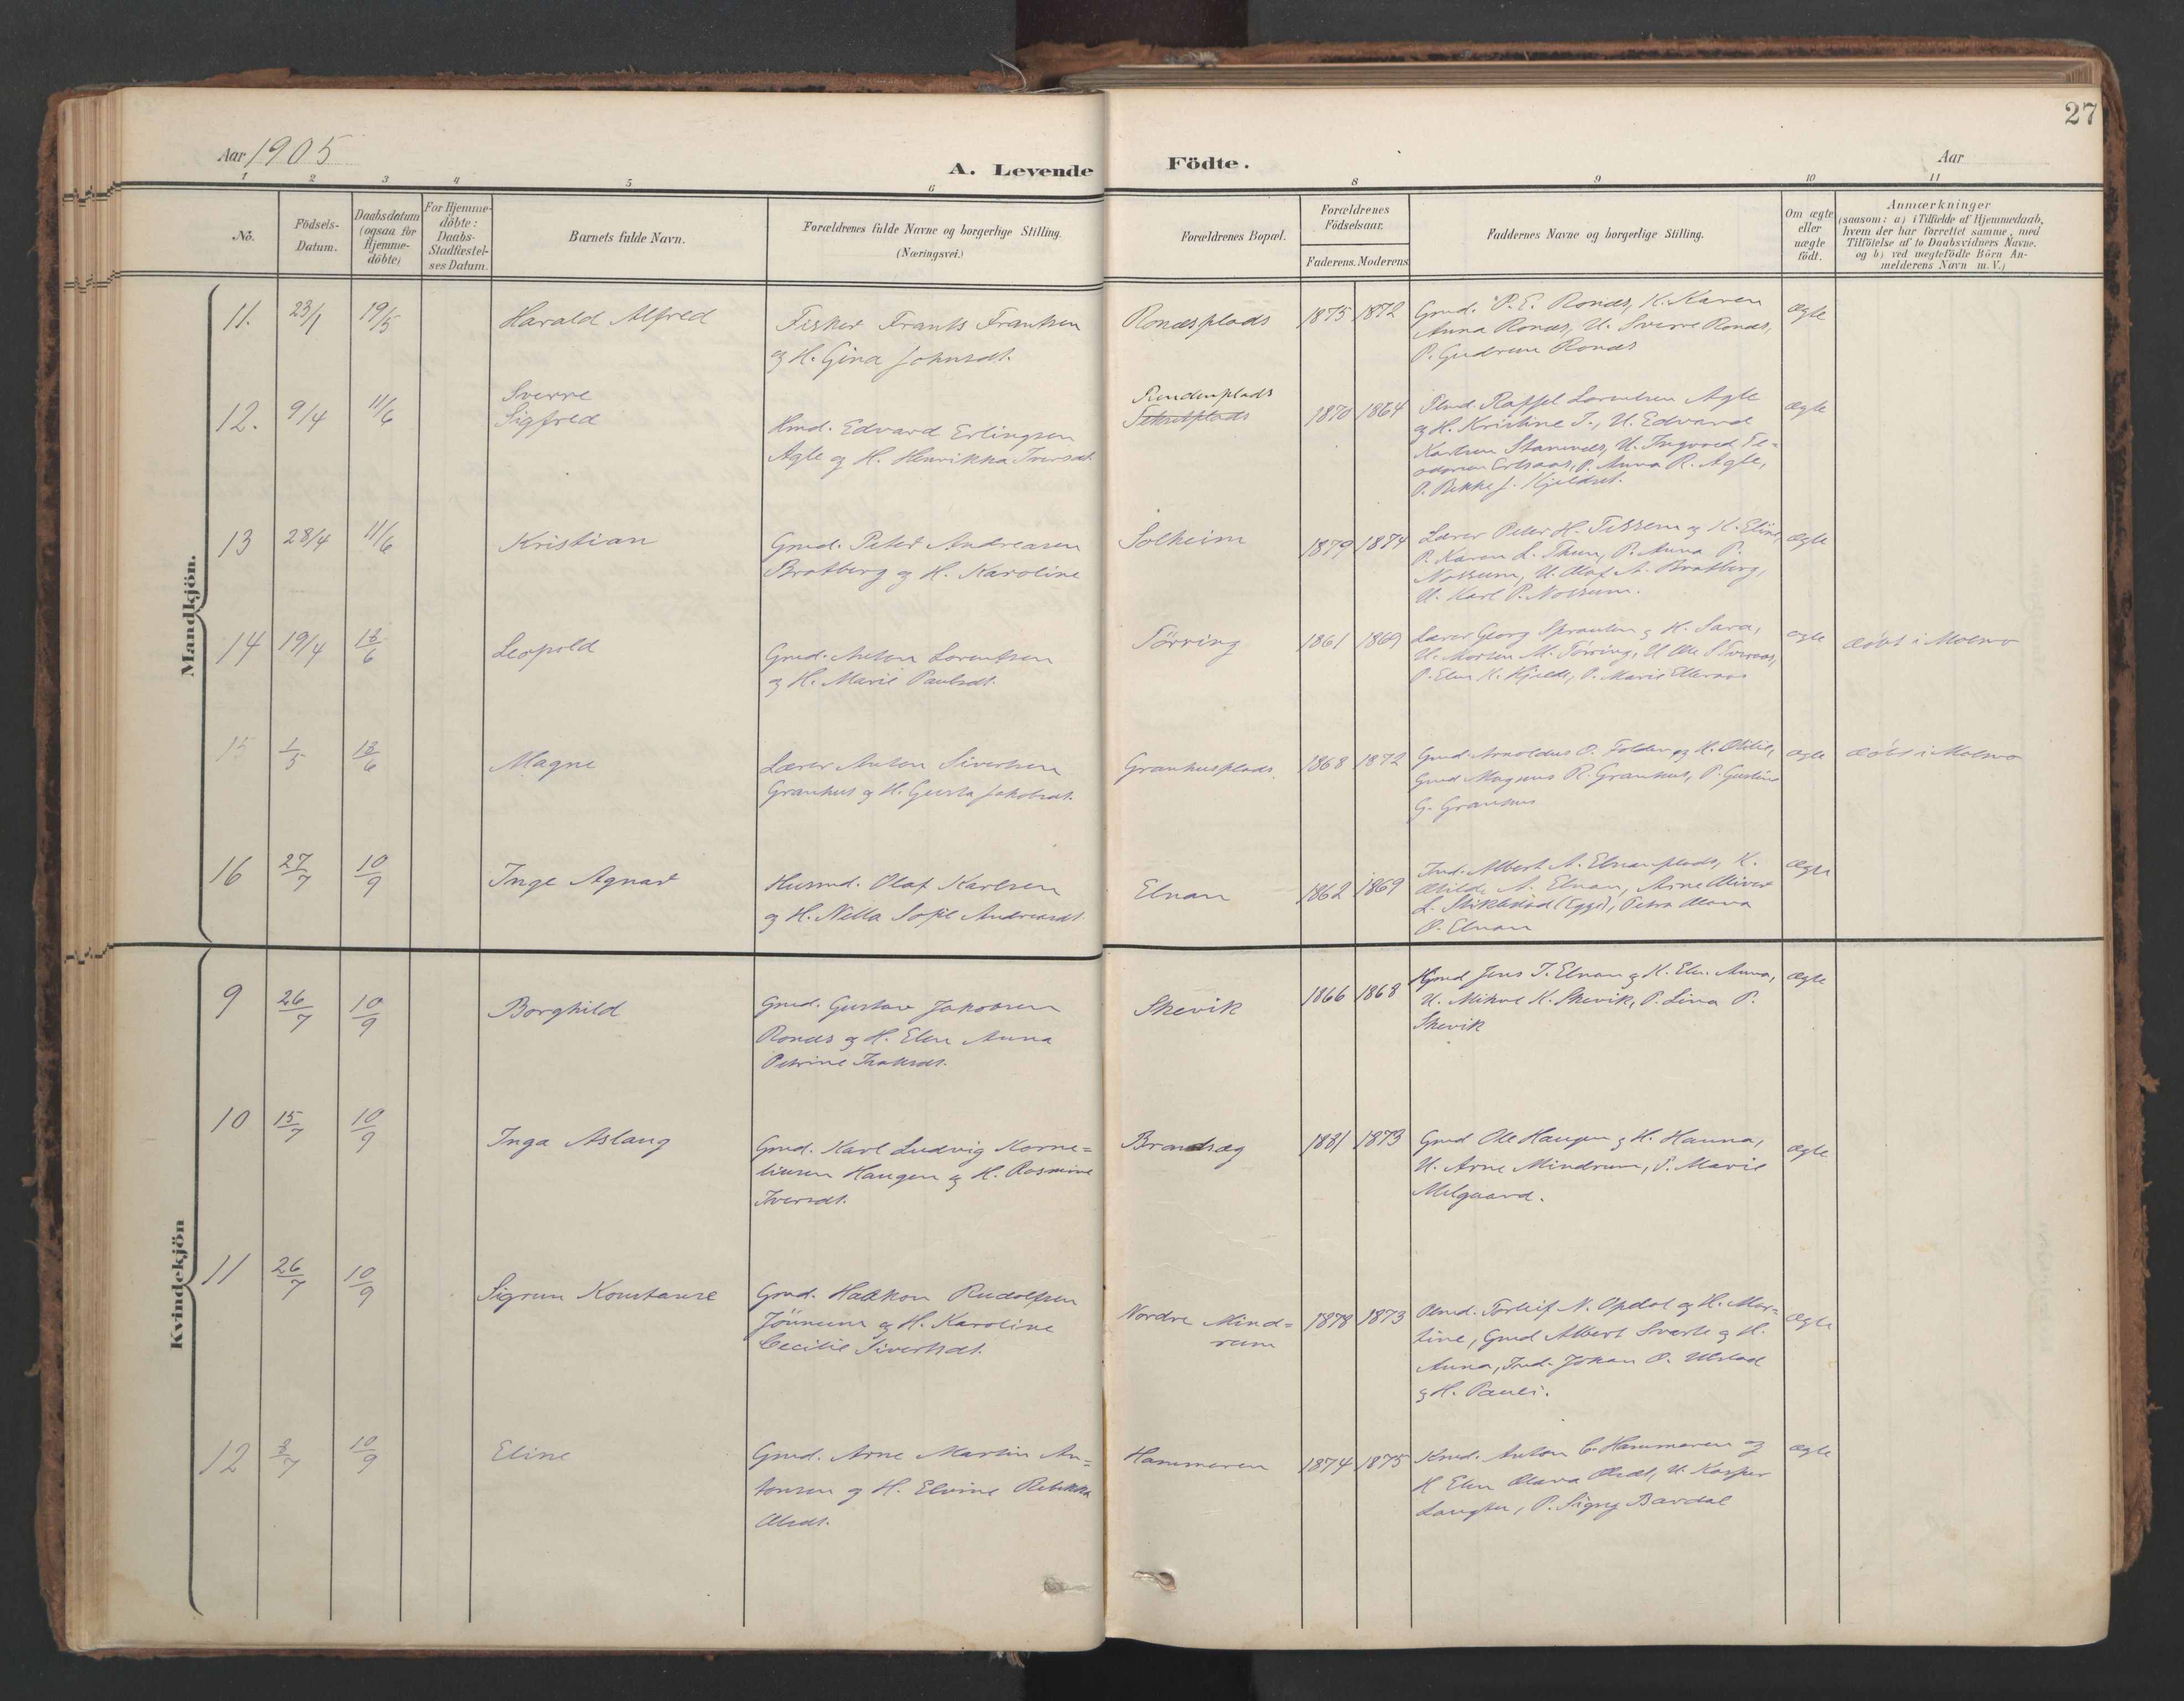 27
Aar 1905
A. Levende Födte.
Aar
1 2 3 4 5 6 8 9 10 11
No.
Födsels-
Datum.
Daabsdatum
(ogsaa for
Hjemme-
döbte)
For Hjemme-
döbte:
Daabs-
Stadfæstel-
ses Datum.
Barnets fulde Navn.
Forældrenes fulde Navne og borgerlige Stilling.
(Næringsvei.)
Forældrenes Bopæl.
Forældrenes
Födselsaar.
Faderens. Moderens
Faddernes Navne og borgerlige Stilling.
Om ægte
eller
uægte
födt.
Anmærkninger
(saasom: a) i Tilfælde af Hjemmedaab,
hvem der har forrettet samme, med
Tilföielse af to Daabsvidners Navne.
og b) ved uægtefödte Börn An-
melderens Navn m. V.)
Mandkjön.
11. 23/1 19/5
Harald Alfred
Fisker Frants Frantsen
og H. Gina Johnsdt.
Ronæsplads
1875 1872
Gmd. P. E. Ronæs, K. Karen
Anna Ronæs, U. Sverre Ronæs,
P. Gudrun Ronæs
ægte
12. 9/4 11/6
Sverre
Sigfred
Hmd. Edvard Erlingsen
Agle og H. Henrikka Iversdt.
1870 1864
Rassel Lorentsen Agle
og H. Kristine I., U. Edvard
Karlsen U. Ingvard
P. Anna R. Agle,
ægte
13 28/4 11/6
Kristian
Gmd. Peter Andreasen
Bratberg og H. Karoline
Solheim
1879 1874
Lærer Peter H. Tessem og H. Elin,
P. Karen L. Thun, P. Anna P.
Nossum, U. Olaf A. Bratberg,
U. Karl P. Nossum.
ægte
14 19/4 13/6
Leopold
Gmd. Anton Lorentsen
og H. Marie Paulsdt.
Törring
1861 1869
Lærer Georg og H. Sara,
U. Morten M. Törring, U. Ole
P. Elen K. Kjelde, P. Marie
ægte
døbt i Malmo
15 1/5 13/6
Magne
Lærer Anton Sivertsen
Granhus og H. Gusta Jakobsdt.
Granhusplads.
1868 1872
Gmd. Arnoldus O. Folden og H. Otilie,
Gmd Magnus R. Granhus, P. Gustine
G. Granhus
ægte
døbt i Malmo
16 27/7 10/9
Inge Agnar
Husmd. Olaf Karlsen
og H. Nella Sofie Andreasdt.
Elnan
1862 1869
Ind. Albert A. Elnanplads, K.
Otilde A. Elnan, Arne Oliver
L. Stiklestad (Egge), Petra Olava
O. Elnan
ægte
Kvindekjön
9 26/7 10/9
Borghild
Gmd. Gustav Jakobsen
Ronæs og H. Elen Anna
Petrine Isaksdt.
Skevik
1866 1868
Gmd Jens J. Elnan og H. Elen Anna,
U. Mikal K. Skevik, P. Lina P.
Skevik
ægte
10 15/7 10/9
Inga Aslaug
Gmd. Karl Ludvig Korne=
liusen Haugen og H. Rasmine
Iversdt.
Brandsæg
1881 1873
Gmd Ole Haugen og H. Hanna,
U. Arne Mindrum, P. Marie
Melgaard.
ægte
11 26/7 10/9
Sigrun Konstanse
Gmd. Haakon Rudolfsen
Jönnum og H. Karoline
Cecilie Sivertsdt.
Nordre Mind=
rum
1878 1873
Torleif N. Opdal og H. Mar=
tine, Gmd Albert Svarte og H.
Anna, Ind. Johan O. Ulstad
og H. Pauli.
ægte
12 3/7 10/9
Eline
Gmd. Arne Martin An=
tonsen og H. Elvine Rebekka
Olsdt.
Hammeren
1874 1875
Kmd. Anton C. Hammeren og
H Elen Olava Olsdt, U. Kasper
P. Signy Bardal
ægte